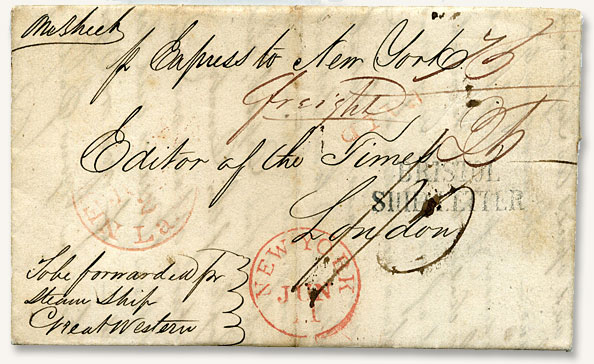 One Sheet
pr Express to New York 75
freight 25
Editor of the Times
BRISTOL
SHIP LETTER
London
To be forwarded pr
Steam Ship
Great Western
NEW YORK
JUN
11
La